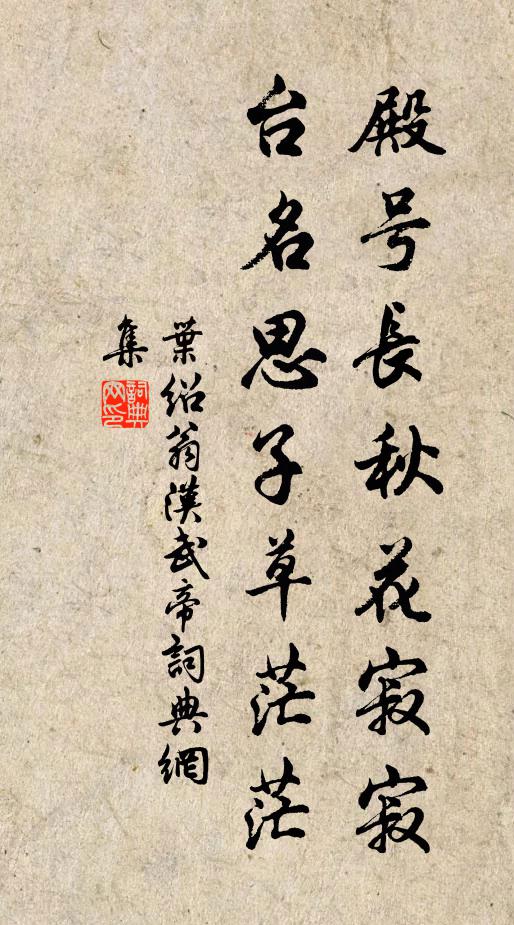 殿号長秋花寂寂
台名思子草茫茫
葉紹翁漢武帝詞典網
集
詞典
网印